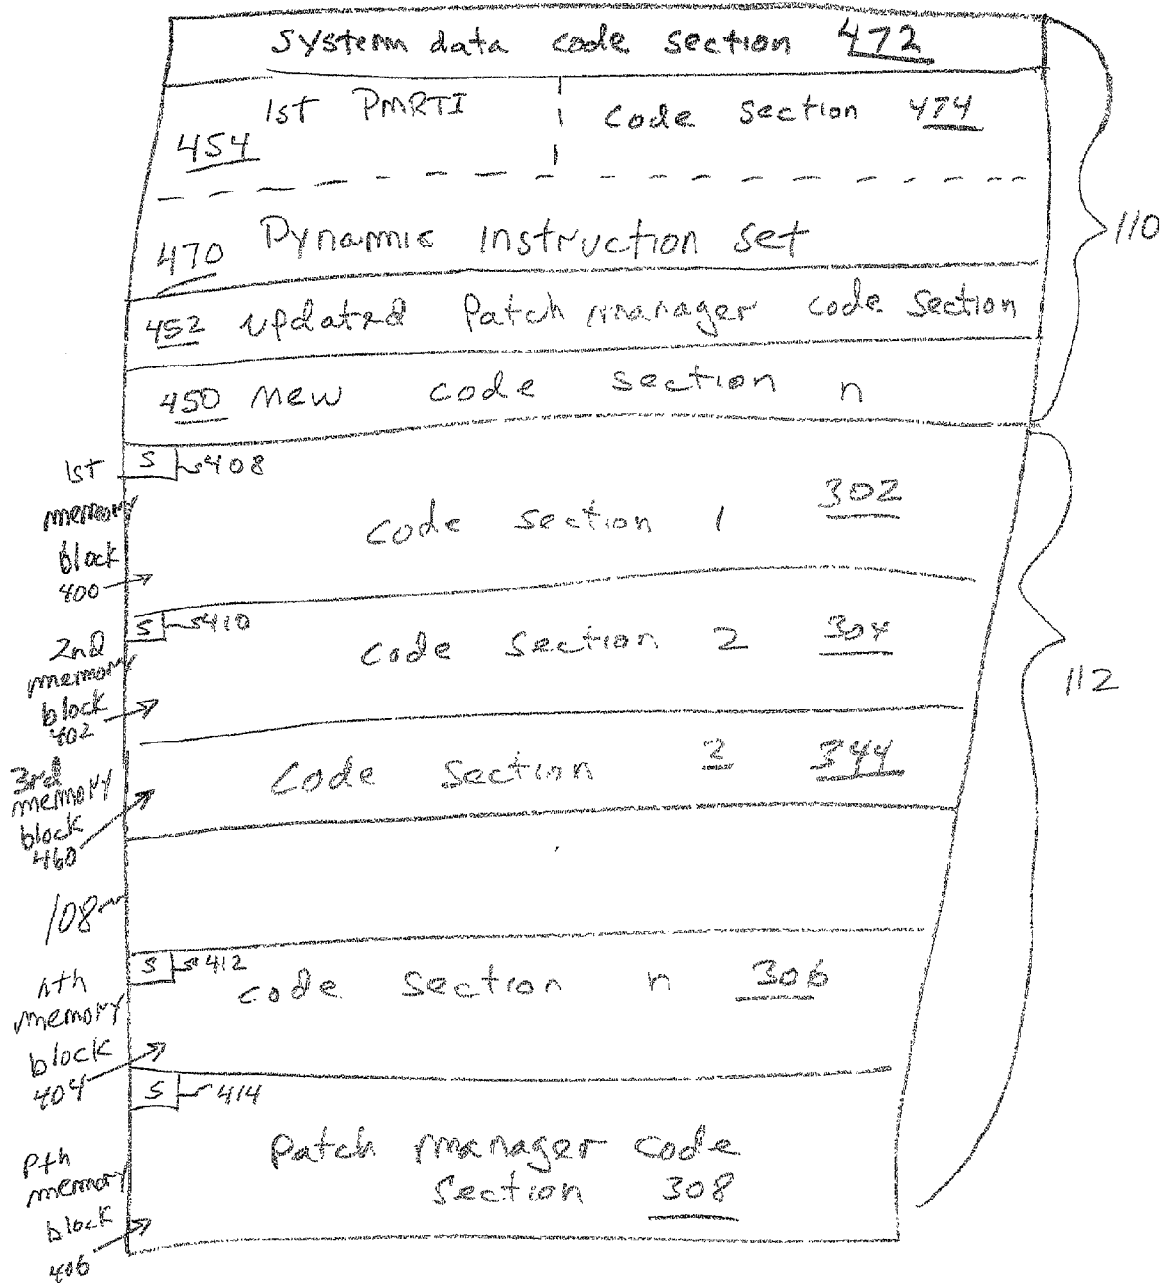 System data code section 472
1st PMRTI code section 474
454
470 Dynamic instruction set
110
452 updated Patch manager code section
450 new code section n
1st memory block 400
S 408
code section 1 302
2nd memory block 402
S 410
code section 2 304
112
3rd memory block 460
Code Section 3 344
108
nth memory block 404
S 412
code section n 306
S 414
pth memory block 406
Patch manager code
section 308